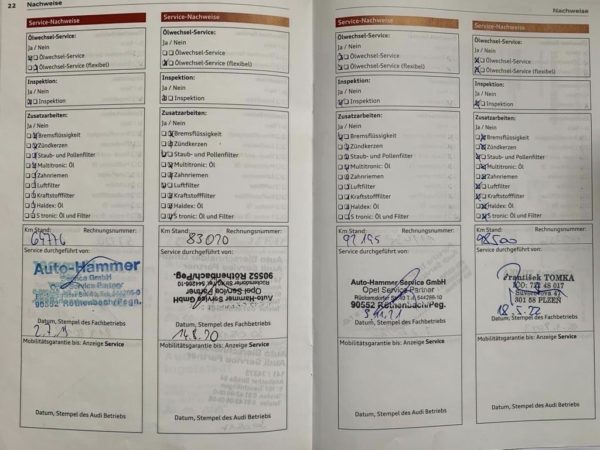 22 Nachweise
Service-Nachweise
Ölwechsel-Service:
Ja / Nein
Ölwechsel-Service
Ölwechsel-Service (flexibel)
Inspektion:
Ja / Nein
Inspektion
Zusatzarbeiten:
Ja / Nein
Bremsflüssigkeit
Zündkerzen
Staub- und Pollenfilter
Multitronic: Öl
Zahnriemen
Luftfilter
Kraftstofffilter
Haldex: Öl
S tronic: Öl und Filter
Km Stand: Rechnungsnummer:
64776
Service durchgeführt von:
Auto-Hammer
Service GmbH
Opel Service Partner
90552 Röthenbach/Pegn.
2.7.19
Datum, Stempel des Fachbetriebs
Mobilitätsgarantie bis: Anzeige Service
Datum, Stempel des Audi Betriebs
Service-Nachweise
Ölwechsel-Service:
Ja / Nein
Ölwechsel-Service
Ölwechsel-Service (flexibel)
Inspektion:
Ja / Nein
Inspektion
Zusatzarbeiten:
Ja / Nein
Bremsflüssigkeit
Zündkerzen
Staub- und Pollenfilter
Multitronic: Öl
Zahnriemen
Luftfilter
Kraftstofffilter
Haldex: Öl
S tronic: Öl und Filter
Km Stand: Rechnungsnummer:
83020
Service durchgeführt von:
Auto-Hammer Service GmbH
Opel Service Partner
90552 Röthenbach/Peg.
Datum, Stempel des Fachbetriebs
14.8.20
Mobilitätsgarantie bis: Anzeige Service
Datum, Stempel des Audi Betriebs
Nachweise
Service-Nachweise
Ölwechsel-Service:
Ja / Nein
Ölwechsel-Service
Ölwechsel-Service (flexibel)
Inspektion:
Ja / Nein
Inspektion
Zusatzarbeiten:
Ja / Nein
Bremsflüssigkeit
Zündkerzen
Staub- und Pollenfilter
Multitronic: Öl
Zahnriemen
Luftfilter
Kraftstofffilter
Haldex: Öl
S tronic: Öl und Filter
Km Stand: Rechnungsnummer:
92195
Service durchgeführt von:
Auto-Hammer Service GmbH
Opel Service Partner
90552 Röthenbach/Peg.
Datum, Stempel des Fachbetriebs
Mobilitätsgarantie bis: Anzeige Service
Datum, Stempel des Audi Betriebs
Service-Nachweise
Ölwechsel-Service:
Ja / Nein
Ölwechsel-Service
Ölwechsel-Service (flexibel)
Inspektion:
Ja / Nein
Inspektion
Zusatzarbeiten:
Ja / Nein
Bremsflüssigkeit
Zündkerzen
Staub- und Pollenfilter
Multitronic: Öl
Zahnriemen
Luftfilter
Kraftstofffilter
Haldex: Öl
S tronic: Öl und Filter
Km Stand: Rechnungsnummer:
98500
Service durchgeführt von:
František TOMKA
301 58 PLZEŇ
18.5.22
Datum, Stempel des Fachbetriebs
Mobilitätsgarantie bis: Anzeige Service
Datum, Stempel des Audi Betriebs